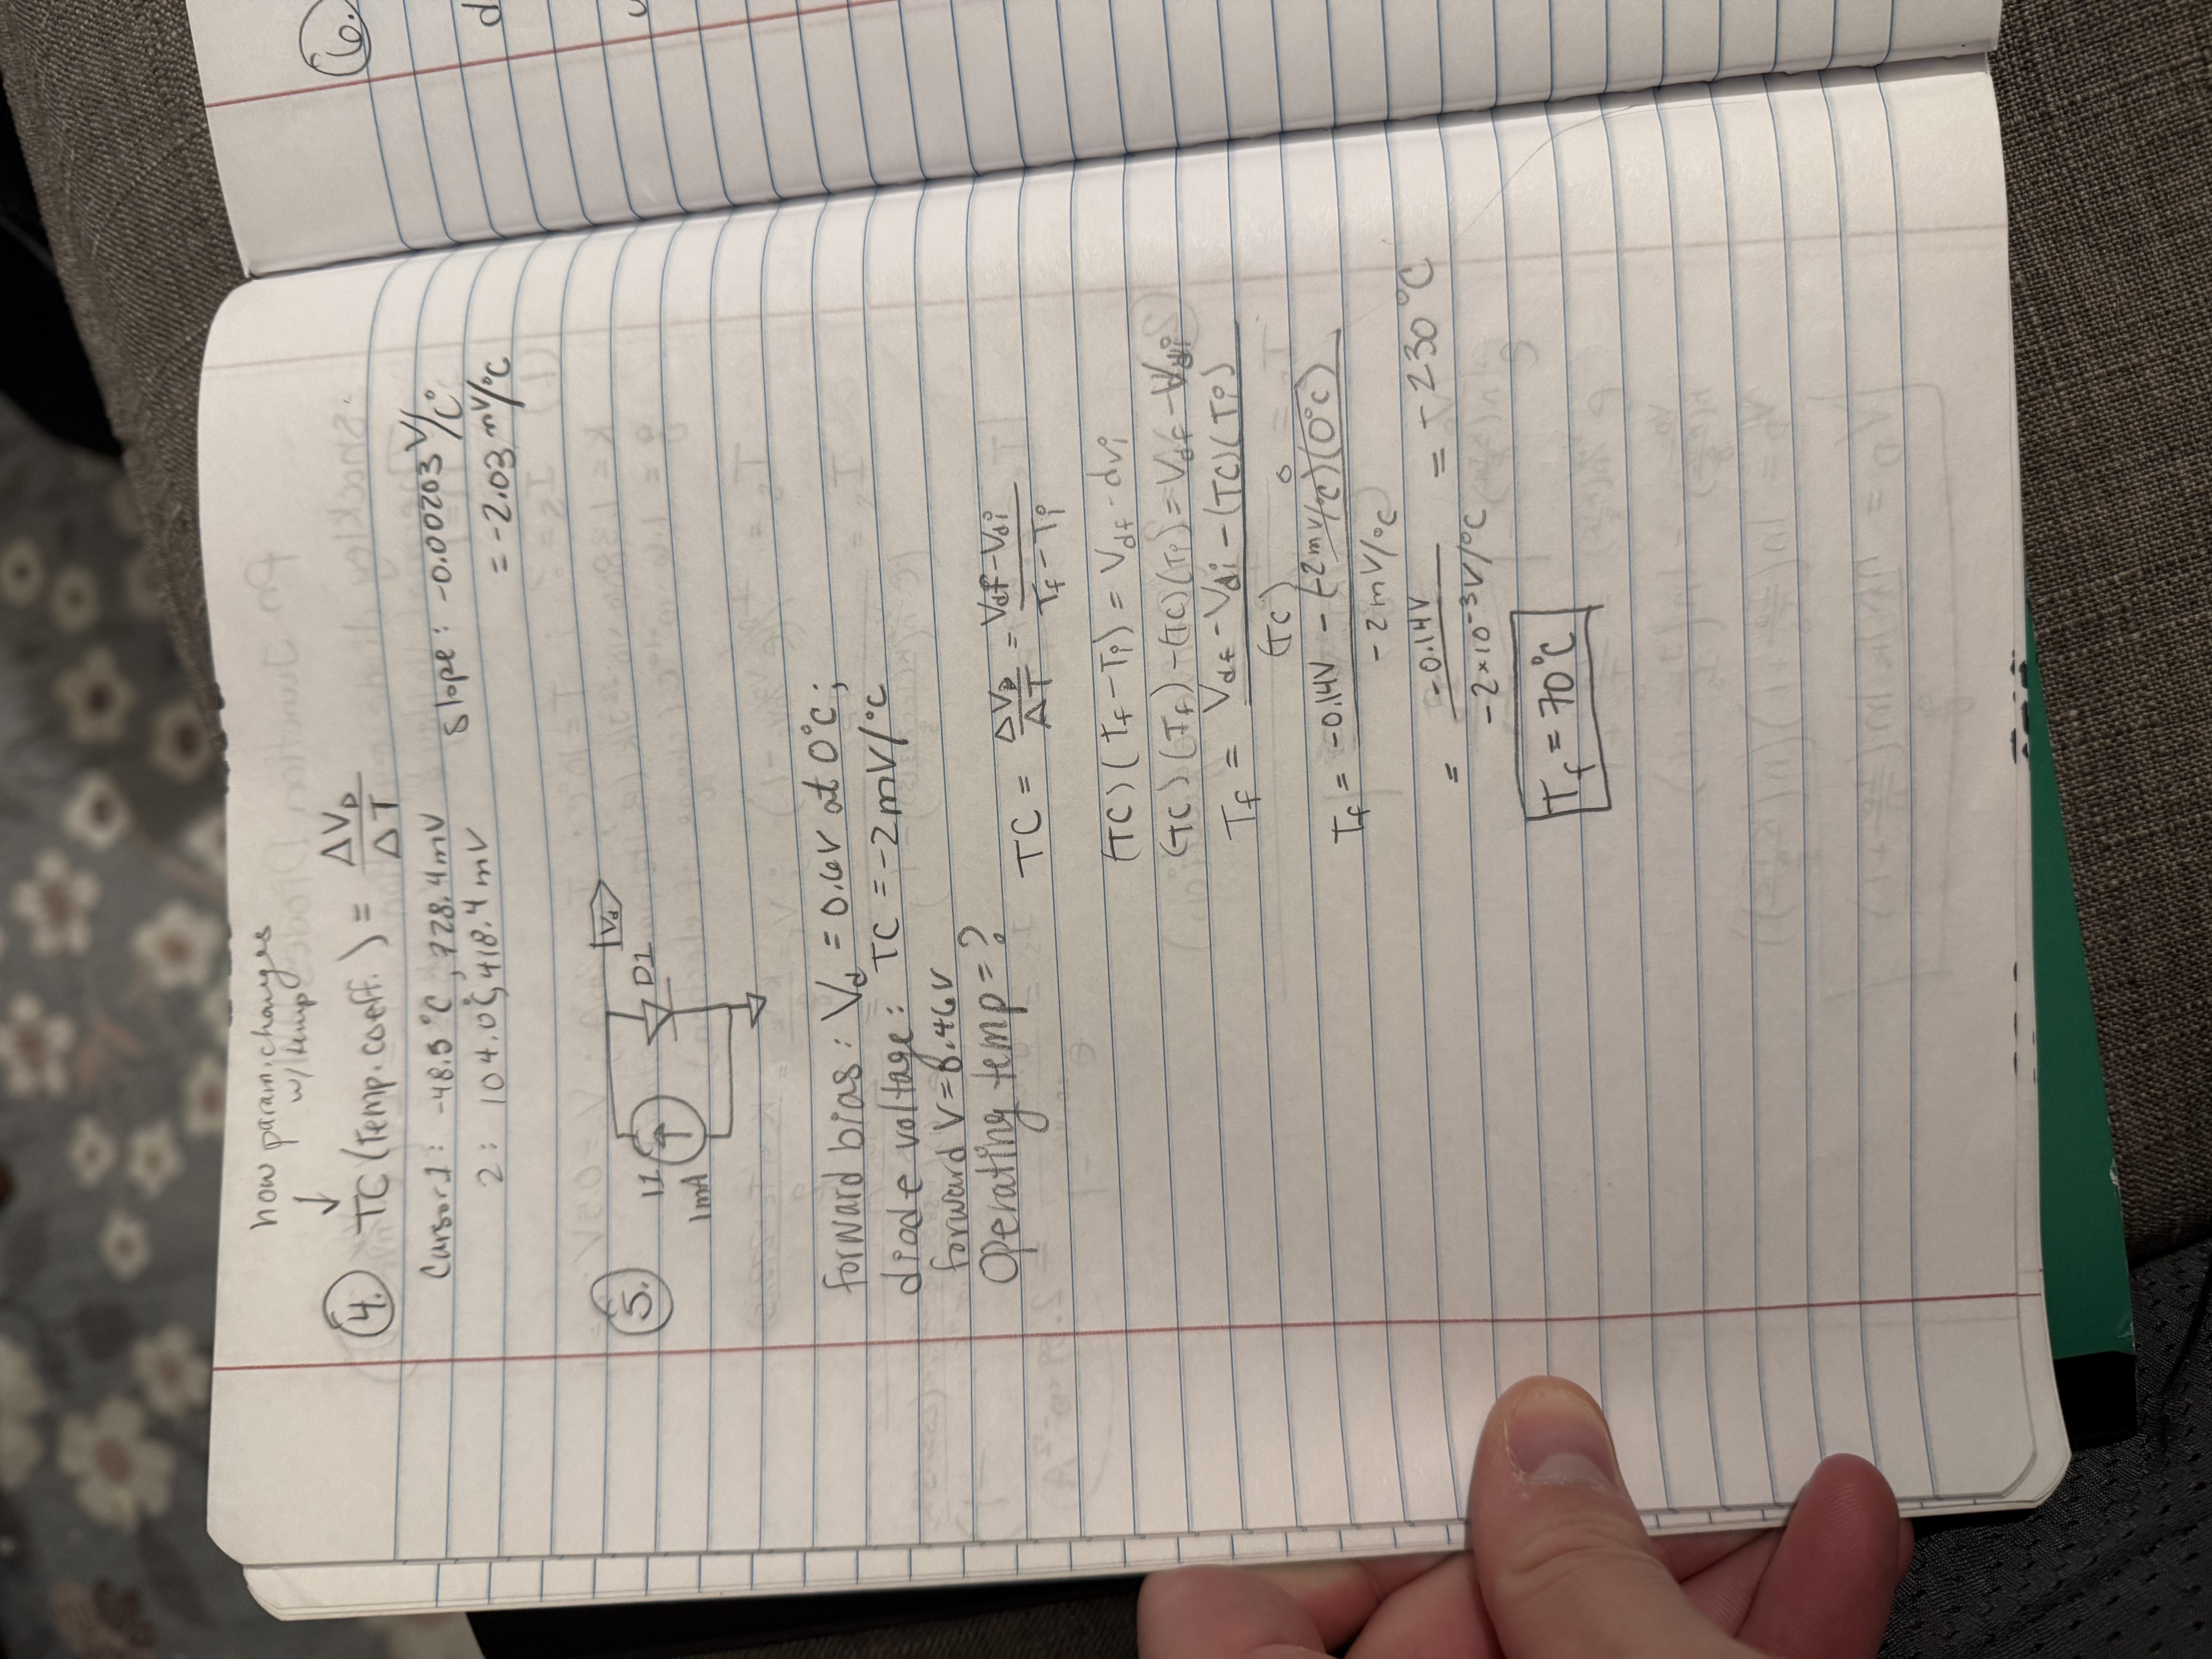 how param. changes
w/ temp
↓
4. TC (Temp. coeff.) = ΔV_D / ΔT
Cursor 1: -48.5 °C, 728.4 mV slope: -0.00203 V/C°
2: 104.0°C, 418.4 mV = -2.03 mV/°C
5.
Vd
I1 D1
1mA
forward bias: V_d = 0.6V at 0°C;
diode voltage: TC = -2mV/°C
forward V = 0.46V
Operating temp = ?
TC = ΔV_D / ΔT = (V_df - V_di) / (T_f - T_i)
(TC)(T_f - T_i) = V_df - dvi
(TC)(T_f) - (TC)(T_i) = V_df - V_di
T_f = (V_df - V_di - (TC)(T_i)) / (TC)
0
T_f = (-0.14V - (-2mV/°C)(0°C)) / (-2mV/°C)
= (-0.14V) / (-2×10^-3 V/°C) = -230°C
T_f = 70°C
6.
d